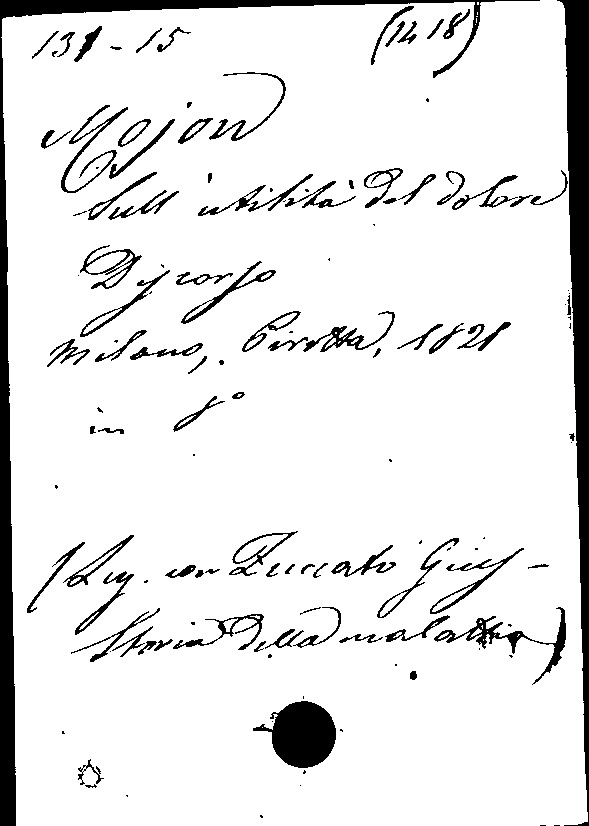 131-15 (1418)
Mojon
Sull'utilità del dolore
Discorso
Milano, Pirotta, 1821
in 8°
(Leg. con Zuccato Gius -
Storia della malattia)